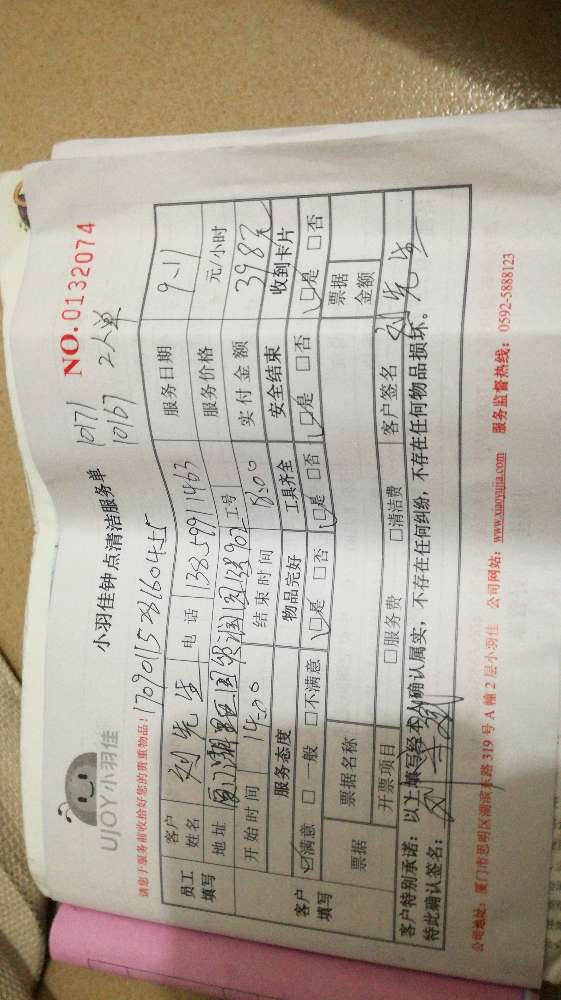 UJOY小羽佳
小羽佳钟点清洁服务单
10171
10167 2人单
NO.0132074
请您于服务前收拾好您的贵重物品!
员工填写
客户姓名 刘先生 电话 13859911463 服务日期 9-11
地址 工号 服务价格 元/小时
开始时间 14:00 结束时间 18:00 实付金额 398元
客户填写
服务态度 物品完好 工具齐全 安全结束 收到卡片
☑满意 □一般 □不满意 ☑是 □否 ☑是 □否 ☑是 □否 ☑是 □否
票据 票据名称 票据金额
开票项目 □服务费 □清洁费 客户签名 刘先生
客户特别承诺:以上填写经本人确认属实,不存在任何纠纷,不存在任何物品损坏。
特此确认签名:
公司地址:厦门市思明区湖滨东路319号A幢2层小羽佳 公司网站:www.xiaoyujia.com 服务监督热线:0592-5888123